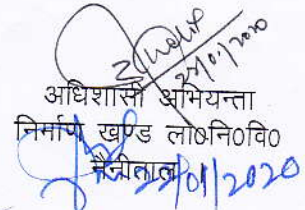 27/01/2020
अधिशासी अभियन्ता
निर्माण खण्ड लो०नि०वि०
नैनीताल
22/01/2020